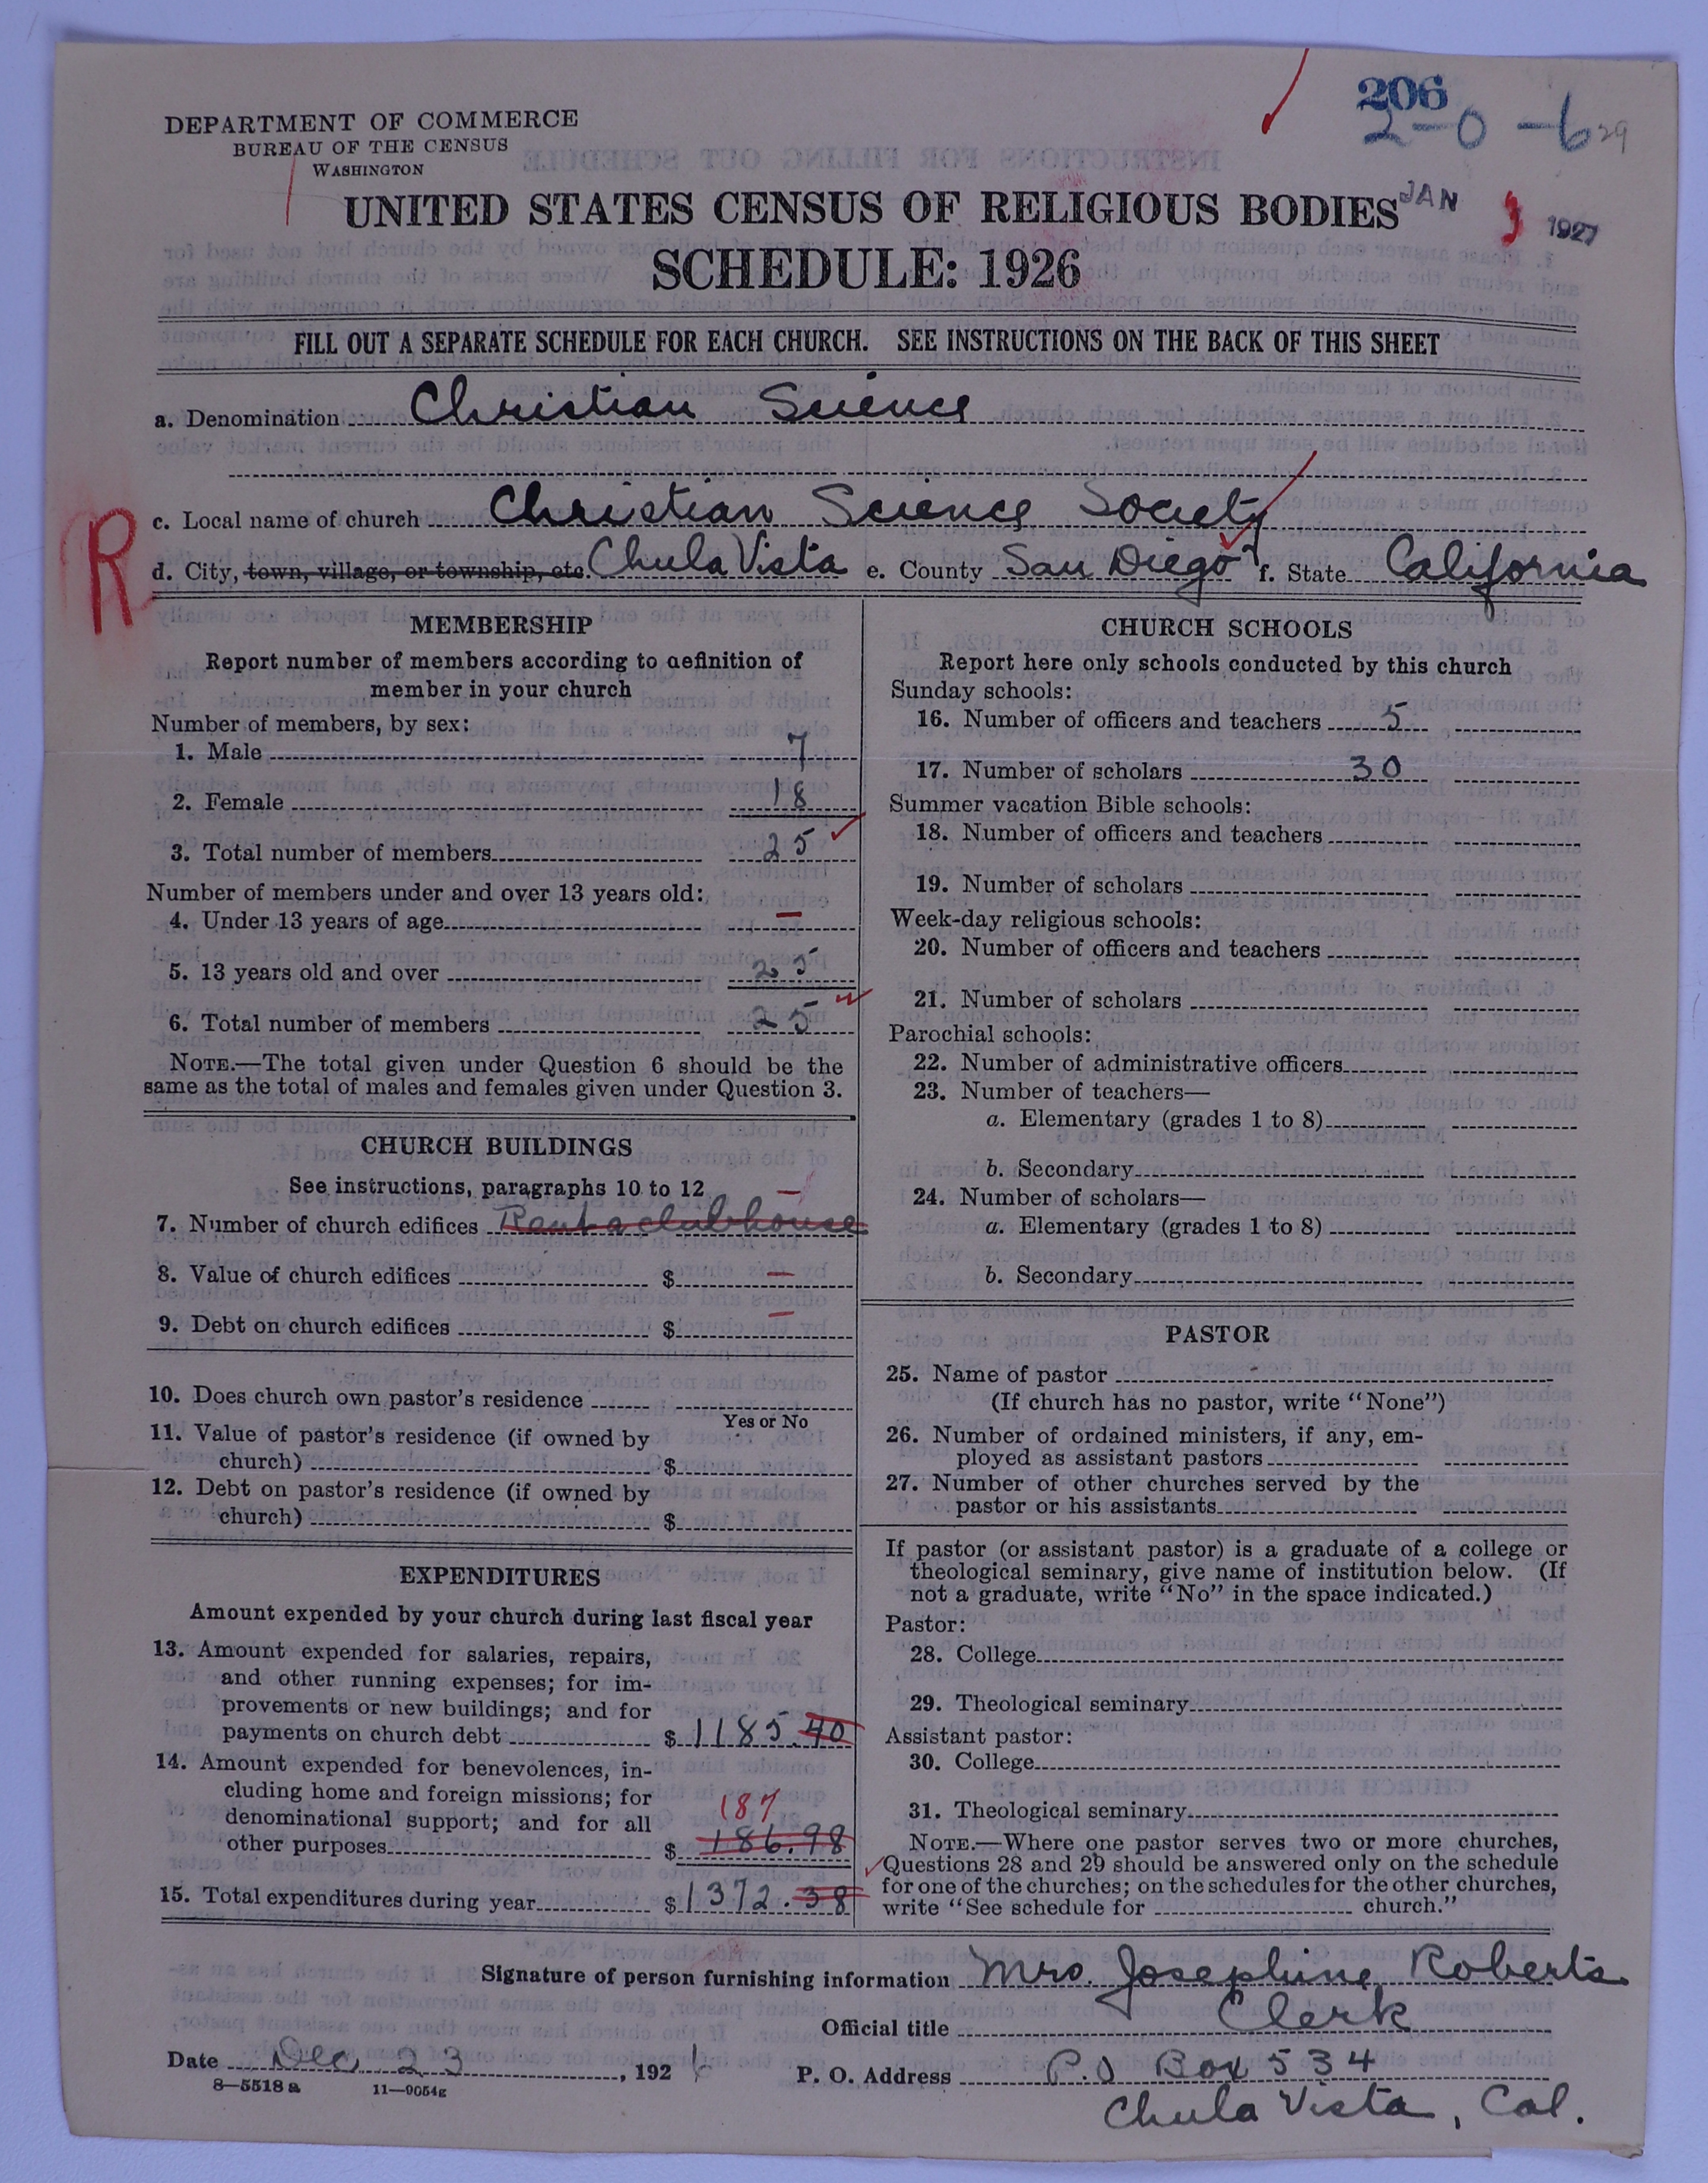 206
2-0-6 29
DEPARTMENT OF COMMERCE
BUREAU OF THE CENSUS
WASHINGTON
UNITED STATES CENSUS OF RELIGIOUS BODIES
JAN 3 1927
SCHEDULE: 1926
FILL OUT A SEPARATE SCHEDULE FOR EACH CHURCH. SEE INSTRUCTIONS ON THE BACK OF THIS SHEET
a. Denomination Christian Science
c. Local name of church Christian Science Society
R
d. City, town, village, or township, etc. Chula Vista e. County San Diego f. State California
MEMBERSHIP
Report number of members according to definition of
member in your church
Number of members, by sex:
1. Male 7
2. Female 18
3. Total number of members 25
Number of members under and over 13 years old:
4. Under 13 years of age –
5. 13 years old and over 25
6. Total number of members 25
NOTE.—The total given under Question 6 should be the
same as the total of males and females given under Question 3.
CHURCH BUILDINGS
See instructions, paragraphs 10 to 12 –
7. Number of church edifices Rent a clubhouse
8. Value of church edifices $ –
9. Debt on church edifices $ –
10. Does church own pastor's residence
Yes or No
11. Value of pastor's residence (if owned by
church) $
12. Debt on pastor's residence (if owned by
church) $
EXPENDITURES
Amount expended by your church during last fiscal year
13. Amount expended for salaries, repairs,
and other running expenses; for im-
provements or new buildings; and for
payments on church debt $ 1185.40
14. Amount expended for benevolences, in-
cluding home and foreign missions; for
denominational support; and for all
187
other purposes $ 186.98
15. Total expenditures during year $ 1372.38
CHURCH SCHOOLS
Report here only schools conducted by this church
Sunday schools:
16. Number of officers and teachers 5
17. Number of scholars 30
Summer vacation Bible schools:
18. Number of officers and teachers
19. Number of scholars
Week-day religious schools:
20. Number of officers and teachers
21. Number of scholars
Parochial schools:
22. Number of administrative officers
23. Number of teachers—
a. Elementary (grades 1 to 8)
b. Secondary
24. Number of scholars—
a. Elementary (grades 1 to 8)
b. Secondary
PASTOR
25. Name of pastor
(If church has no pastor, write "None")
26. Number of ordained ministers, if any, em-
ployed as assistant pastors
27. Number of other churches served by the
pastor or his assistants
If pastor (or assistant pastor) is a graduate of a college or
theological seminary, give name of institution below. (If
not a graduate, write "No" in the space indicated.)
Pastor:
28. College
29. Theological seminary
Assistant pastor:
30. College
31. Theological seminary
NOTE.—Where one pastor serves two or more churches,
Questions 28 and 29 should be answered only on the schedule
for one of the churches; on the schedules for the other churches,
write "See schedule for church."
Signature of person furnishing information Mrs. Josephine Roberts
Official title Clerk
Date Dec 23, 1926
P. O. Address P.O Box 534
8—5518a 11—9054g
Chula Vista, Cal.